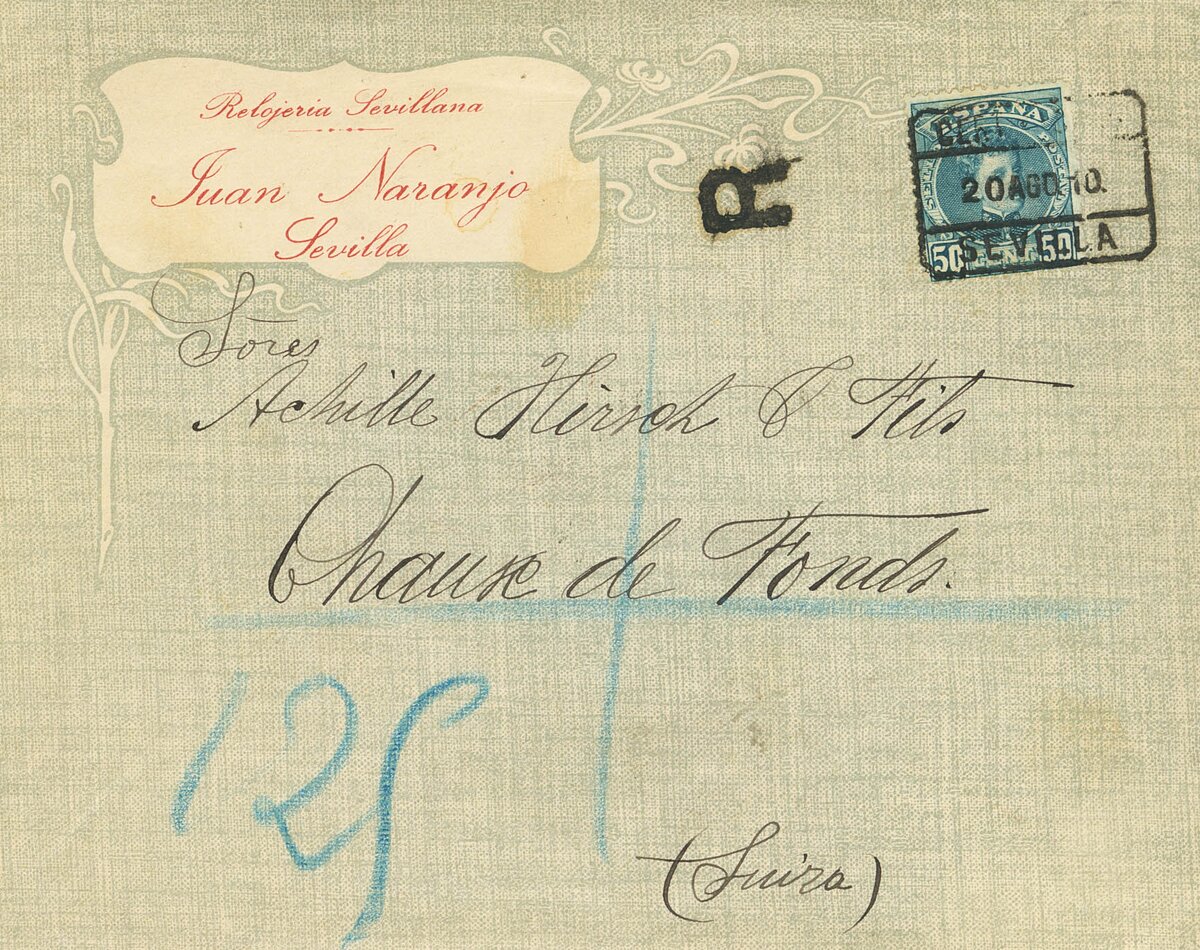 Relojeria Sevillana
Juan Naranjo
Sevilla
R
ESPAÑA
20 AGO 10
SEVILLA
50 50
Sōres
Achille Hirsch & Fils
Chaux de Fonds.
125
(Suiza)